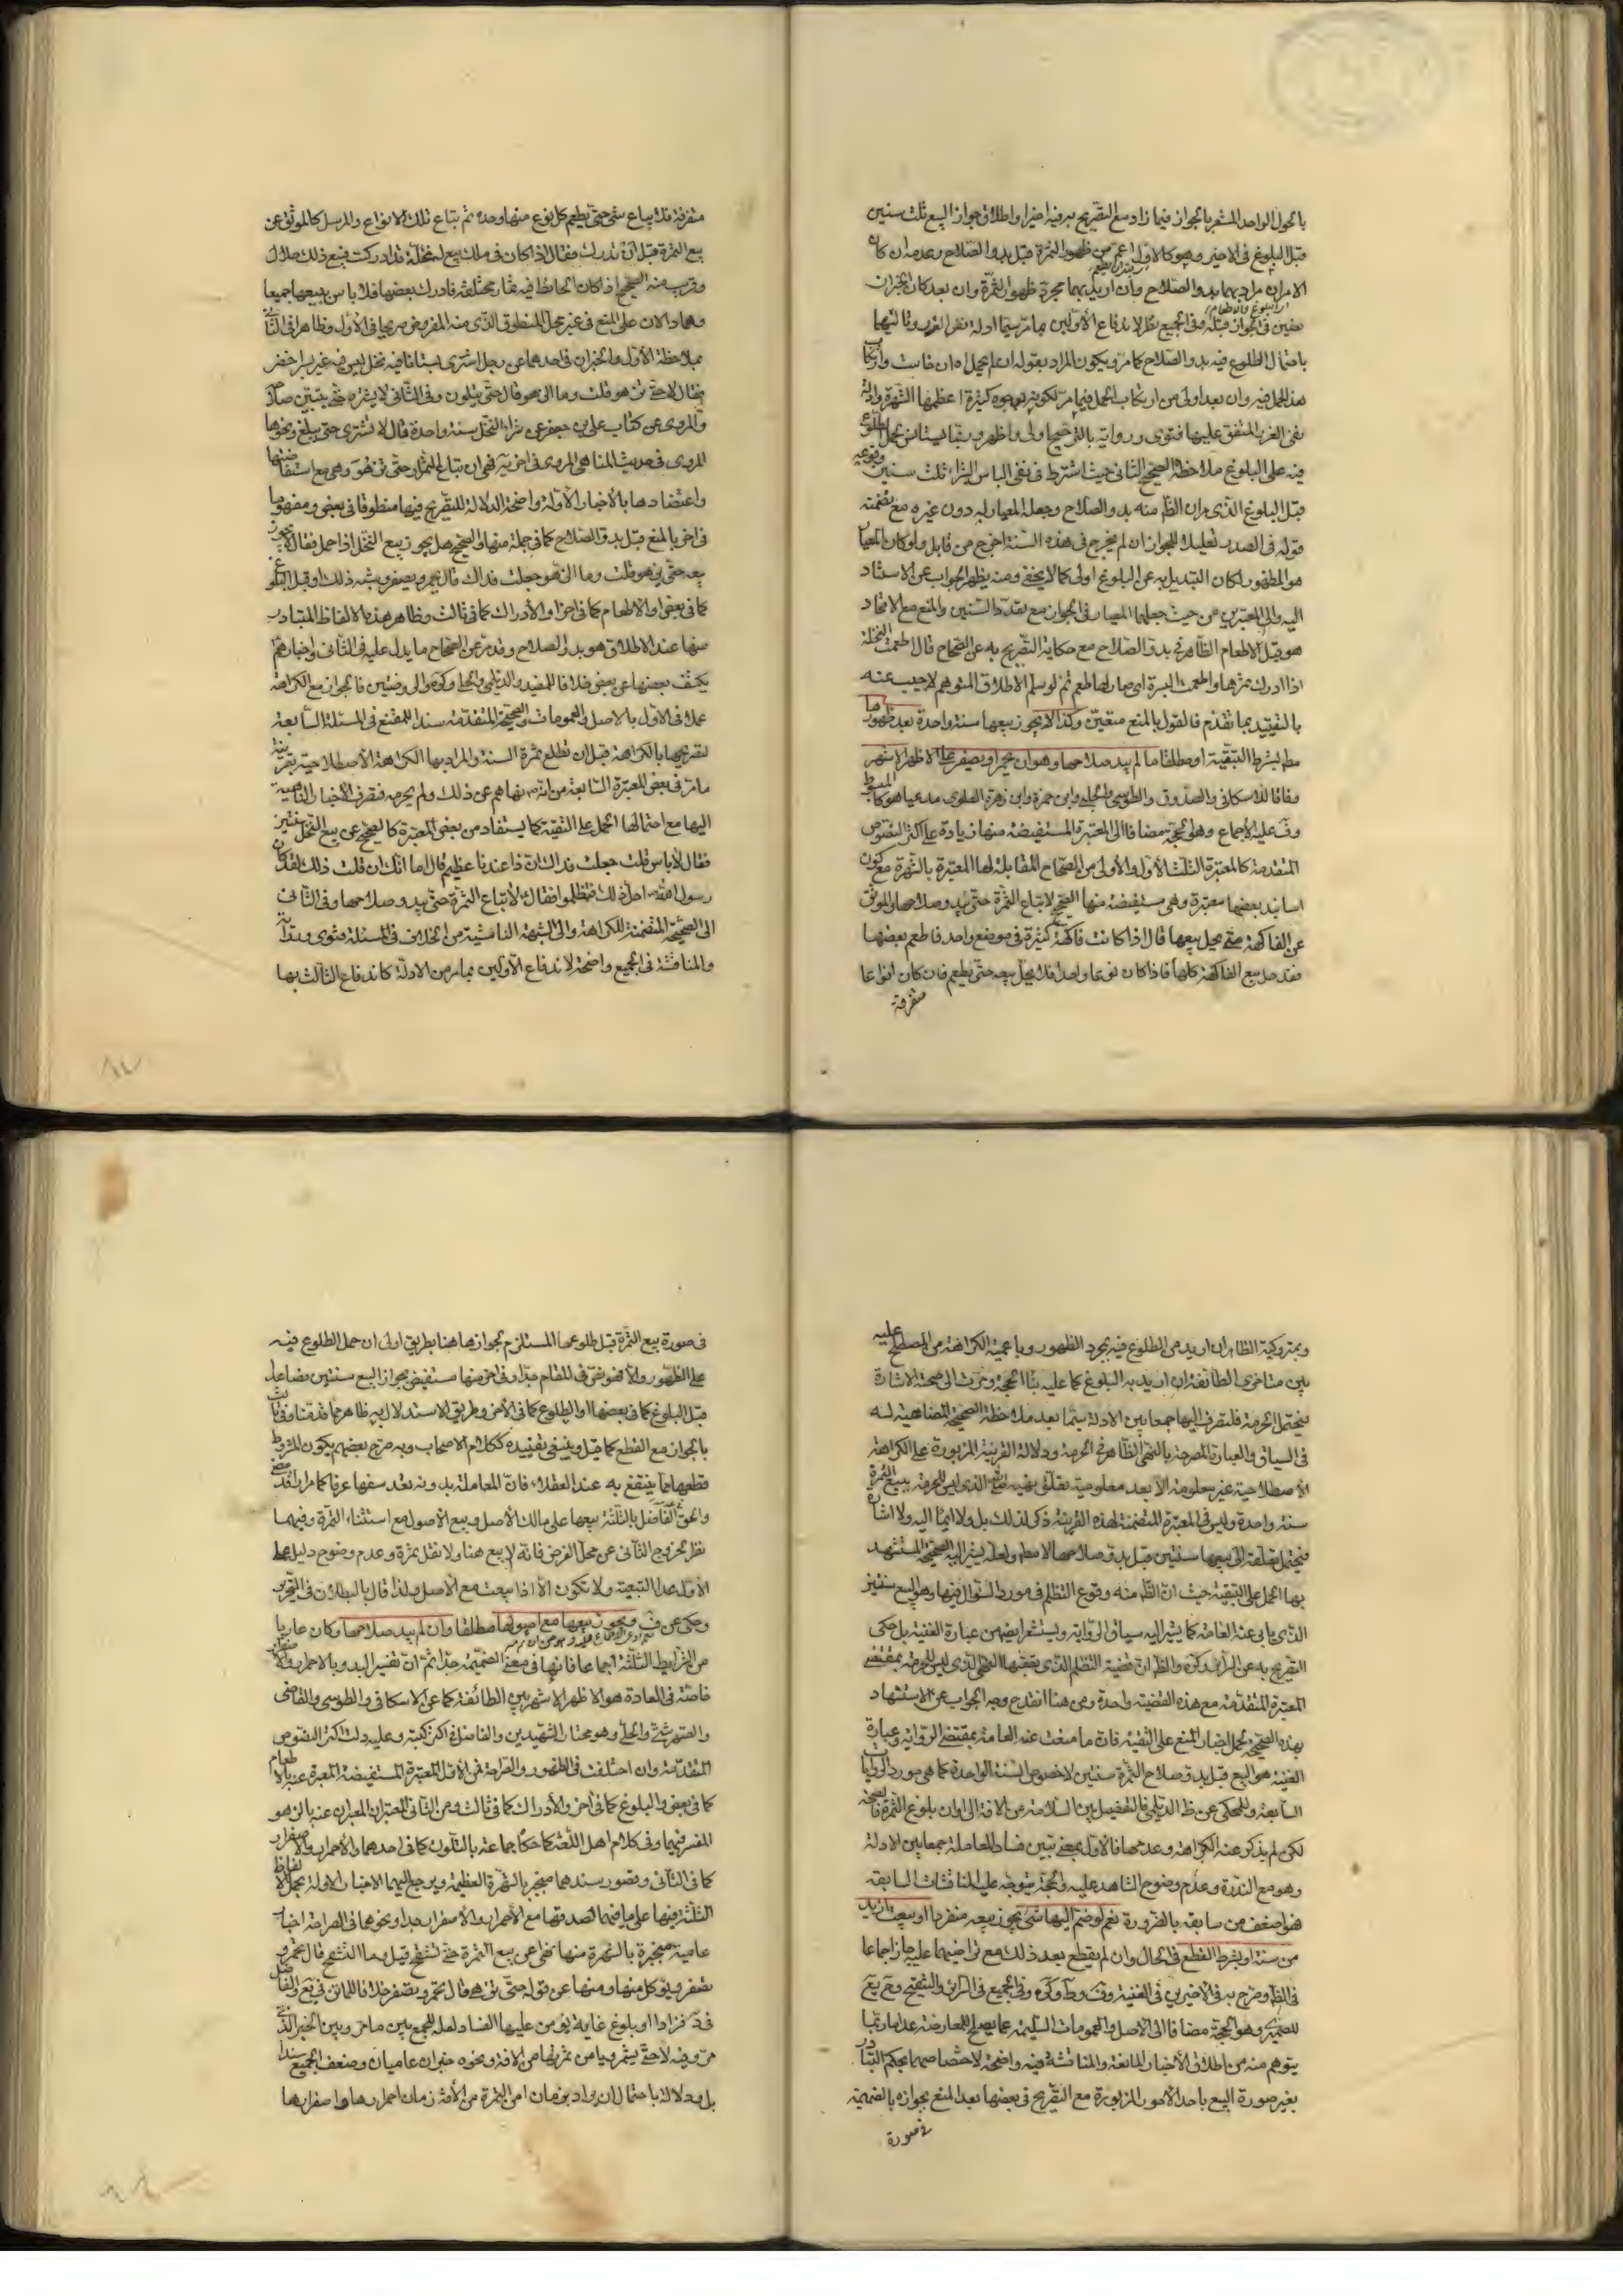 بالحول الواحد المشعر بالجواز فيما زاد مع التصريح به فيه اخيرا واطلاق جواز البيع ثلث سنين
قبل البلوغ في الاخير وهو كالاول اعم من ظهور الثمرة قبل بدو الصلاح وعدمه ان كان
الامران مراد بهما بدو الصلاح وان اريد بهما مجرد ظهور الثمرة وان بعد كان الخبران
نصين في الجواز قبله وفي الجميع نظر لاندفاع الاولين بما مر سيما ادلة نفي الغرر وثالثهما
باحتمال الطلوع فيه بدو الصلاح كما مر ويكون المراد بقوله ان لم يحمل
هذا الحمل فيه وان بعد اولى من ارتكاب الحمل فيما مر لكونه بوجوه كثيرة اعظمها الشهرة وادلة
نفي الغرر المتفق عليها فتوى ورواية بالترجيح اولى
فيه على البلوغ ملاحظة الصحيح الثاني حيث اشترط في نفي الباس لشراء ثلث سنين
قبل البلوغ الذي مر ان الظاهر منه بدو الصلاح وجعل المعيار له دون غيره مع تضمنه
قوله في الصدر تعليلا للجواز ان لم يخرج في هذه السنة اخرج من قابل ولو كان المعيار
هو الظهور لكان التبديل به عن البلوغ اولى كما لا يخفى ومنه يظهر الجواب عن الاستناد
اليه والى المعتبرين من حيث جعلهما المعيار في الجواز مع تعدد السنين والمنع مع الاتحاد
هو قبل الاطعام الظاهر في بدو الصلاح مع حكاية التصريح به عن الصحاح قال اطعمت النخلة
اذا ادرك ثمرها واطعمت البسرة اي صار لها طعم ثم لو سلم الاطلاق المتوهم لاجيب عنه
بالتقييد بما تقدم فالقول بالمنع متعين وكذا لا يجوز بيعها سنة واحدة بعد ظهورها
ما لم يبد صلاحها وهو ان يحمر او يصفر على الاظهر الاشهر
وفاقا للاسكافي والصدوق والطوسي والحلبي وابن حمزة وابن زهرة العلوي مدعيا هو كالمبسوط
وف عليه الاجماع وهو الحجة مضافا الى المعتبرة المستفيضة منها زيادة على اكثر النصوص
المتقدمة كالمعتبرة الثلث الاول والاولى من الصحاح المقابلة لها المعتبرة بالشهرة مع كون
اسانيد بعضها معتبرة وهي مستفيضة منها الصحيح لا تباع الثمرة حتى يبدو صلاحها والموثق
عن الفاكهة متى يحل بيعها قال اذا كانت فاكهة كثيرة في موضع واحد فاطعم بعضها
فقد حل بيع الفاكهة كلها فاذا كان نوعا واحدا فلا يحل بيعه حتى يطعم فان كان انواعا
متفرقة
متفرقة فلا يباع شئ حتى يطعم كل نوع منها وحده ثم يباع تلك الانواع والمرسل كالموثق عن
بيع الثمرة قبل ان تدرك فقال اذا كان في ملك بيع له غلة قد ادركت فبيع ذلك حلال
وقريب منه الصحيح اذا كان الحائط فيه ثمار مختلفة فادرك بعضها فلا باس ببيعها جميعا
وهما دالان على المنع في غير محل المنطوق الذي منه المفروض صريحا في الاول وظاهرا في الثاني
بملاحظة الاول والخبران في احدهما عن رجل اشترى بستانا فيه نخل ليس فيه غير بسر اخضر
فقال لا حتى يزهو قلت وما الزهو قال حتى يتلون وفي الثاني لا يشتره حتى يتبين صلاحه
والمروي عن كتاب علي بن جعفر عن شراء النخل سنة واحدة قال لا تشترى حتى يبلغ ونحوها
المروي في حديث المناهي المروي في اخر يه نهى ان تباع الثمار حتى تزهو وهي مع استفاضتها
واعتضادها بالاخبار الاولة واضحة الدلالة للتصريح فيها منطوقا في بعض ومفهوما
في اخر بالمنع قبل بدو الصلاح كما في جملة منها والصحيح هل يجوز بيع النخل اذا حمل فقال لا يجوز
بيعه حتى يزهو قلت وما الزهو جعلت فداك قال يحمر ويصفر وشبه ذلك او قبل البلوغ
كما في بعض او الاطعام كما في اخر او الادراك كما في ثالث وظاهر هذه الالفاظ المتبادر
منها عند الاطلاق هو بدو الصلاح وقد مر عن الصحاح ما يدل عليه في الثاني واخبارهم
يكشف بعضها عن بعض خلافا للمفيد والديلمي والحلي وكره والروضتين فالجواز مع الكراهة
عملا في الاول بالاصل والعمومات والصحيحة المتقدمة سندا للمقنع في المسئلة السابعة
لتصريحها بالكراهة قبل ان تطلع ثمرة السنة والمراد بها الكراهة الاصطلاحية بقرينة
ما مر في بعض المعتبرة السابقة من انه نهاهم عن ذلك ولم يحرمه فتصرف الاخبار الناهية
اليها مع احتمالها الحمل على التقية كما يستفاد من بعض المعتبرة كالصحيح عن بيع النخل سنتين
فقال لا باس قلت جعلت فداك ان ذا عندنا عظيم قال اما انك ان قلت ذلك لقد كان
رسول الله احل ذلك فتظلموا فقال لا تباع الثمرة حتى يبدو صلاحها وفي الثاني
الى الصحيحة المتضمنة للكراهة والى الشبهة الناشئة من الخلاف في المسئلة فتوى ورواية
والمناقشة في الجميع واضحة لاندفاع الاولين بما مر من الادلة كاندفاع الثالث بها
وبمتروكية الظاهر ان اريد من الطلوع فيه مجرد الظهور وباعمية الكراهة من المصطلح عليه
بين متاخري الطائفة ان اريد به البلوغ كما عليه بنا الحجة ومرت الى صحته الاشارة
فيحتمل الحرمة فلتصرف اليها جمعا بين الادلة سيما بعد ملاحظة الصحيحة المضاهية له
في السياق والعبارة المصرحة بالنهي الظاهر في الحرمة ودلالة القرينة المزبورة على الكراهة
الاصطلاحية غير معلومة الا بعد معلومية تعلق نهيه الذي ليس للحرمة ببيع الثمرة
سنة واحدة وليس في المعتبرة المتضمنة لهذه القرينة ذكر لذلك بل ولا ايماء اليه ولا اشارة
فيحتمل تعلقه الى بيعها سنتين قبل بدو صلاحها ولعله يشير اليه الصحيح المستشهد
بها الحمل على التقية حيث ان الظاهر منه وقوع التظلم في مورد السؤال فيها وهو البيع سنتين
الذي يابى عنه العامة كما يشير اليه سياق الرواية ويستشعر ايضا من عبارة الغنية بل حكى
التصريح به عن الرازي وكره والظاهر ان قضية التظلم الذي تعقبها النهي الذي ليس للحرمة بمقتضى
المعتبرة المتقدمة مع هذه القضية واحدة ومن هنا انقدح وجه الجواب عن الاستشهاد
بهذه الصحيحة لحمل اخبار المنع على التقية فان ما منعت عنه العامة بمقتضى الرواية وعبارة
الغنية هو البيع قبل بدو صلاح الثمرة سنتين لا خصوص السنة الواحدة كما هي مورد الروايات
السابقة وللمحكي عن ظاهر الديلمي فالتفصيل بين السلامة من الافة الى اوان بلوغ الثمرة فالصحة
لكن لم يذكر عنه الكراهة وعدمها فالاول بمعنى تبين فساد المعاملة جمعا بين الادلة
وهو مع الندرة وعدم وضوح الشاهد عليه والحجة يتوجه عليه المناقشات السابقة
فهو اضعف من سابقه بالضرورة نعم لو ضم اليها شئ يجوز بيعه منفردا او بيعت ازيد
من سنة او بشرط القطع في الحال وان لم يقطع بعد ذلك مع تراضيهما عليه جاز اجماعا
في الظاهر وصرح به في الاخيرين في الغنية وف وط وكره وفي الجميع في الرائع والتنقيح
وهو الحجة مضافا الى الاصل والعمومات السليمة عما يصلح للمعارضة عدا ما ربما
يتوهم منه من اطلاق الاخبار المانعة والمناقشة فيه واضحة لاختصاصها بحكم التبادر
بغير صورة البيع باحد الامور المزبورة مع التصريح في بعضها بعد المنع بجوازه بالضميمة
في صورة
في صورة بيع الثمرة قبل طلوعها المستلزم لجوازها هنا بطريق اولى ان حمل الطلوع فيه
على الظهور والا فهو نص في المقام جدا وفي اخر منها مستفيض بجواز البيع سنتين فصاعدا
قبل البلوغ كما في بعضها او الطلوع كما في الاخر وطريق الاستدلال به ظاهر مما قدمناه
بالجواز مع القطع كما قيل وينبغي تقييده ككلام الاصحاب وبه صرح بعضهم بكون المشروط
قطعها مما ينتفع به عند العقلاء فان المعاملة بدونه تعد سفها عرفا كما مر
والحق الفاضل بالثلثة بيعها على مالك الاصل وبيع الاصول مع استثناء الثمرة وفيهما
نظر لخروج الثاني عن محل الفرض فانه لا بيع هنا ولا نقل ثمرة وعدم وضوح دليل على
الاول عدا التبعية ولا تكون الا اذا بيعت مع الاصل ولذا قال بالبطلان في التحرير
وحكى عن ف ويجوز بيعها مع اصولها مطلقا وان لم يبد صلاحها وكان عاريا
من الشرايط الثلثة اجماعا فانها في معنى الضميمة جدا ثم ان تفسير البدو بالاحمرار والاصفرار
خاصة في العادة هو الاظهر الاشهر بين الطائفة كما عن الاسكافي والطوسي والقاضي
والحلي وهو مختار الشهيدين والفاضل في اكثر كتبه وعليه دلت اكثر النصوص
المتقدمة وان اختلفت في الظهور والصراحة فمن الاول المعتبرة المستفيضة المعبرة عنه بالاطعام
كما في بعض والبلوغ كما في اخر والادراك كما في ثالث ومن الثاني المعتبران المعبران عنه بالزهو
المفسر فيهما وفي كلام اهل اللغة كما حكاه جماعة بالتلون كما في احدهما والاحمرار والاصفرار
كما في الثاني وقصور سندهما منجبر بالشهرة العظيمة ويرجع اليهما الاخبار الاولة بحمل الالفاظ
الثلثة فيها على ما فيهما لصدقها مع الاحمرار والاصفرار جدا ونحوهما في الصراحة اخبار
عامية منجبرة بالشهرة منها نهى عن بيع الثمرة حتى تشقح قيل وما التشقح قال تحمر و
تصفر ويؤكل منها ومنها عن قوله حتى تزهى قال تحمر وتصفر خلافا للماتن في يع والفاضل
في د فزادا او بلوغ غاية يؤمن عليها الفساد لعله للجمع بين ما مر وبين الخبر الذي
مر وفيه لا حتى يثمر ويامن ثمرتها من الافة ونحوه خبران عاميان وضعف الجميع سندا
بل ودلالة باحتمال ان يراد بزمان امن الثمرة من الافة زمان احمرارها او اصفرارها